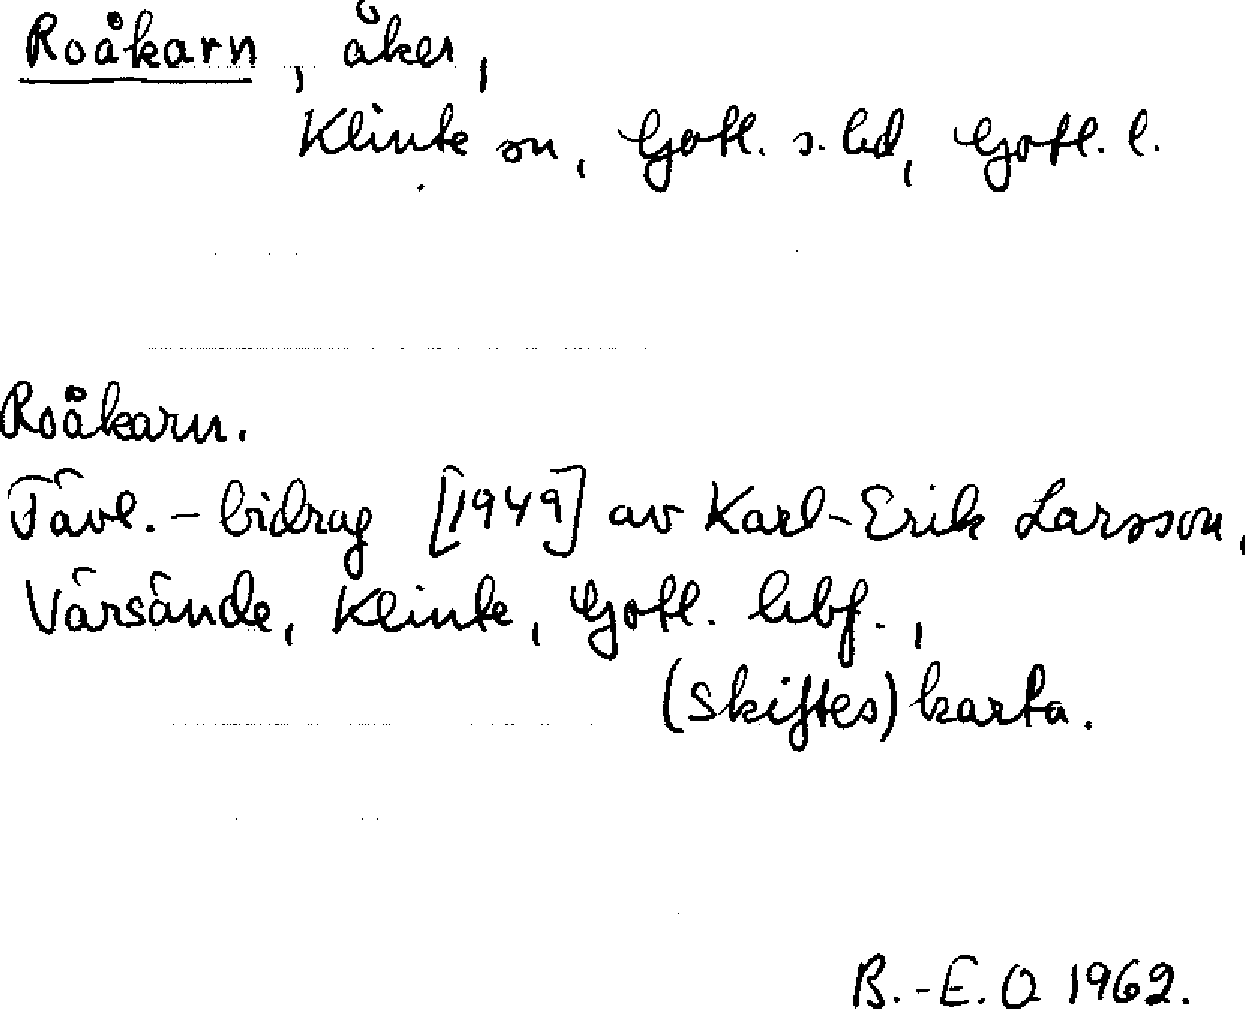 Roåkarn, åker,
Klinte sn, Gotl. s. hd, Gotl. l.
Roåkarn.
Tävl.-bidrag [1949] av Karl-Erik Larsson,
Värsände, Klinte, Gotl. hbf.,
(Skiftes)karta.
B.-E. O 1962.